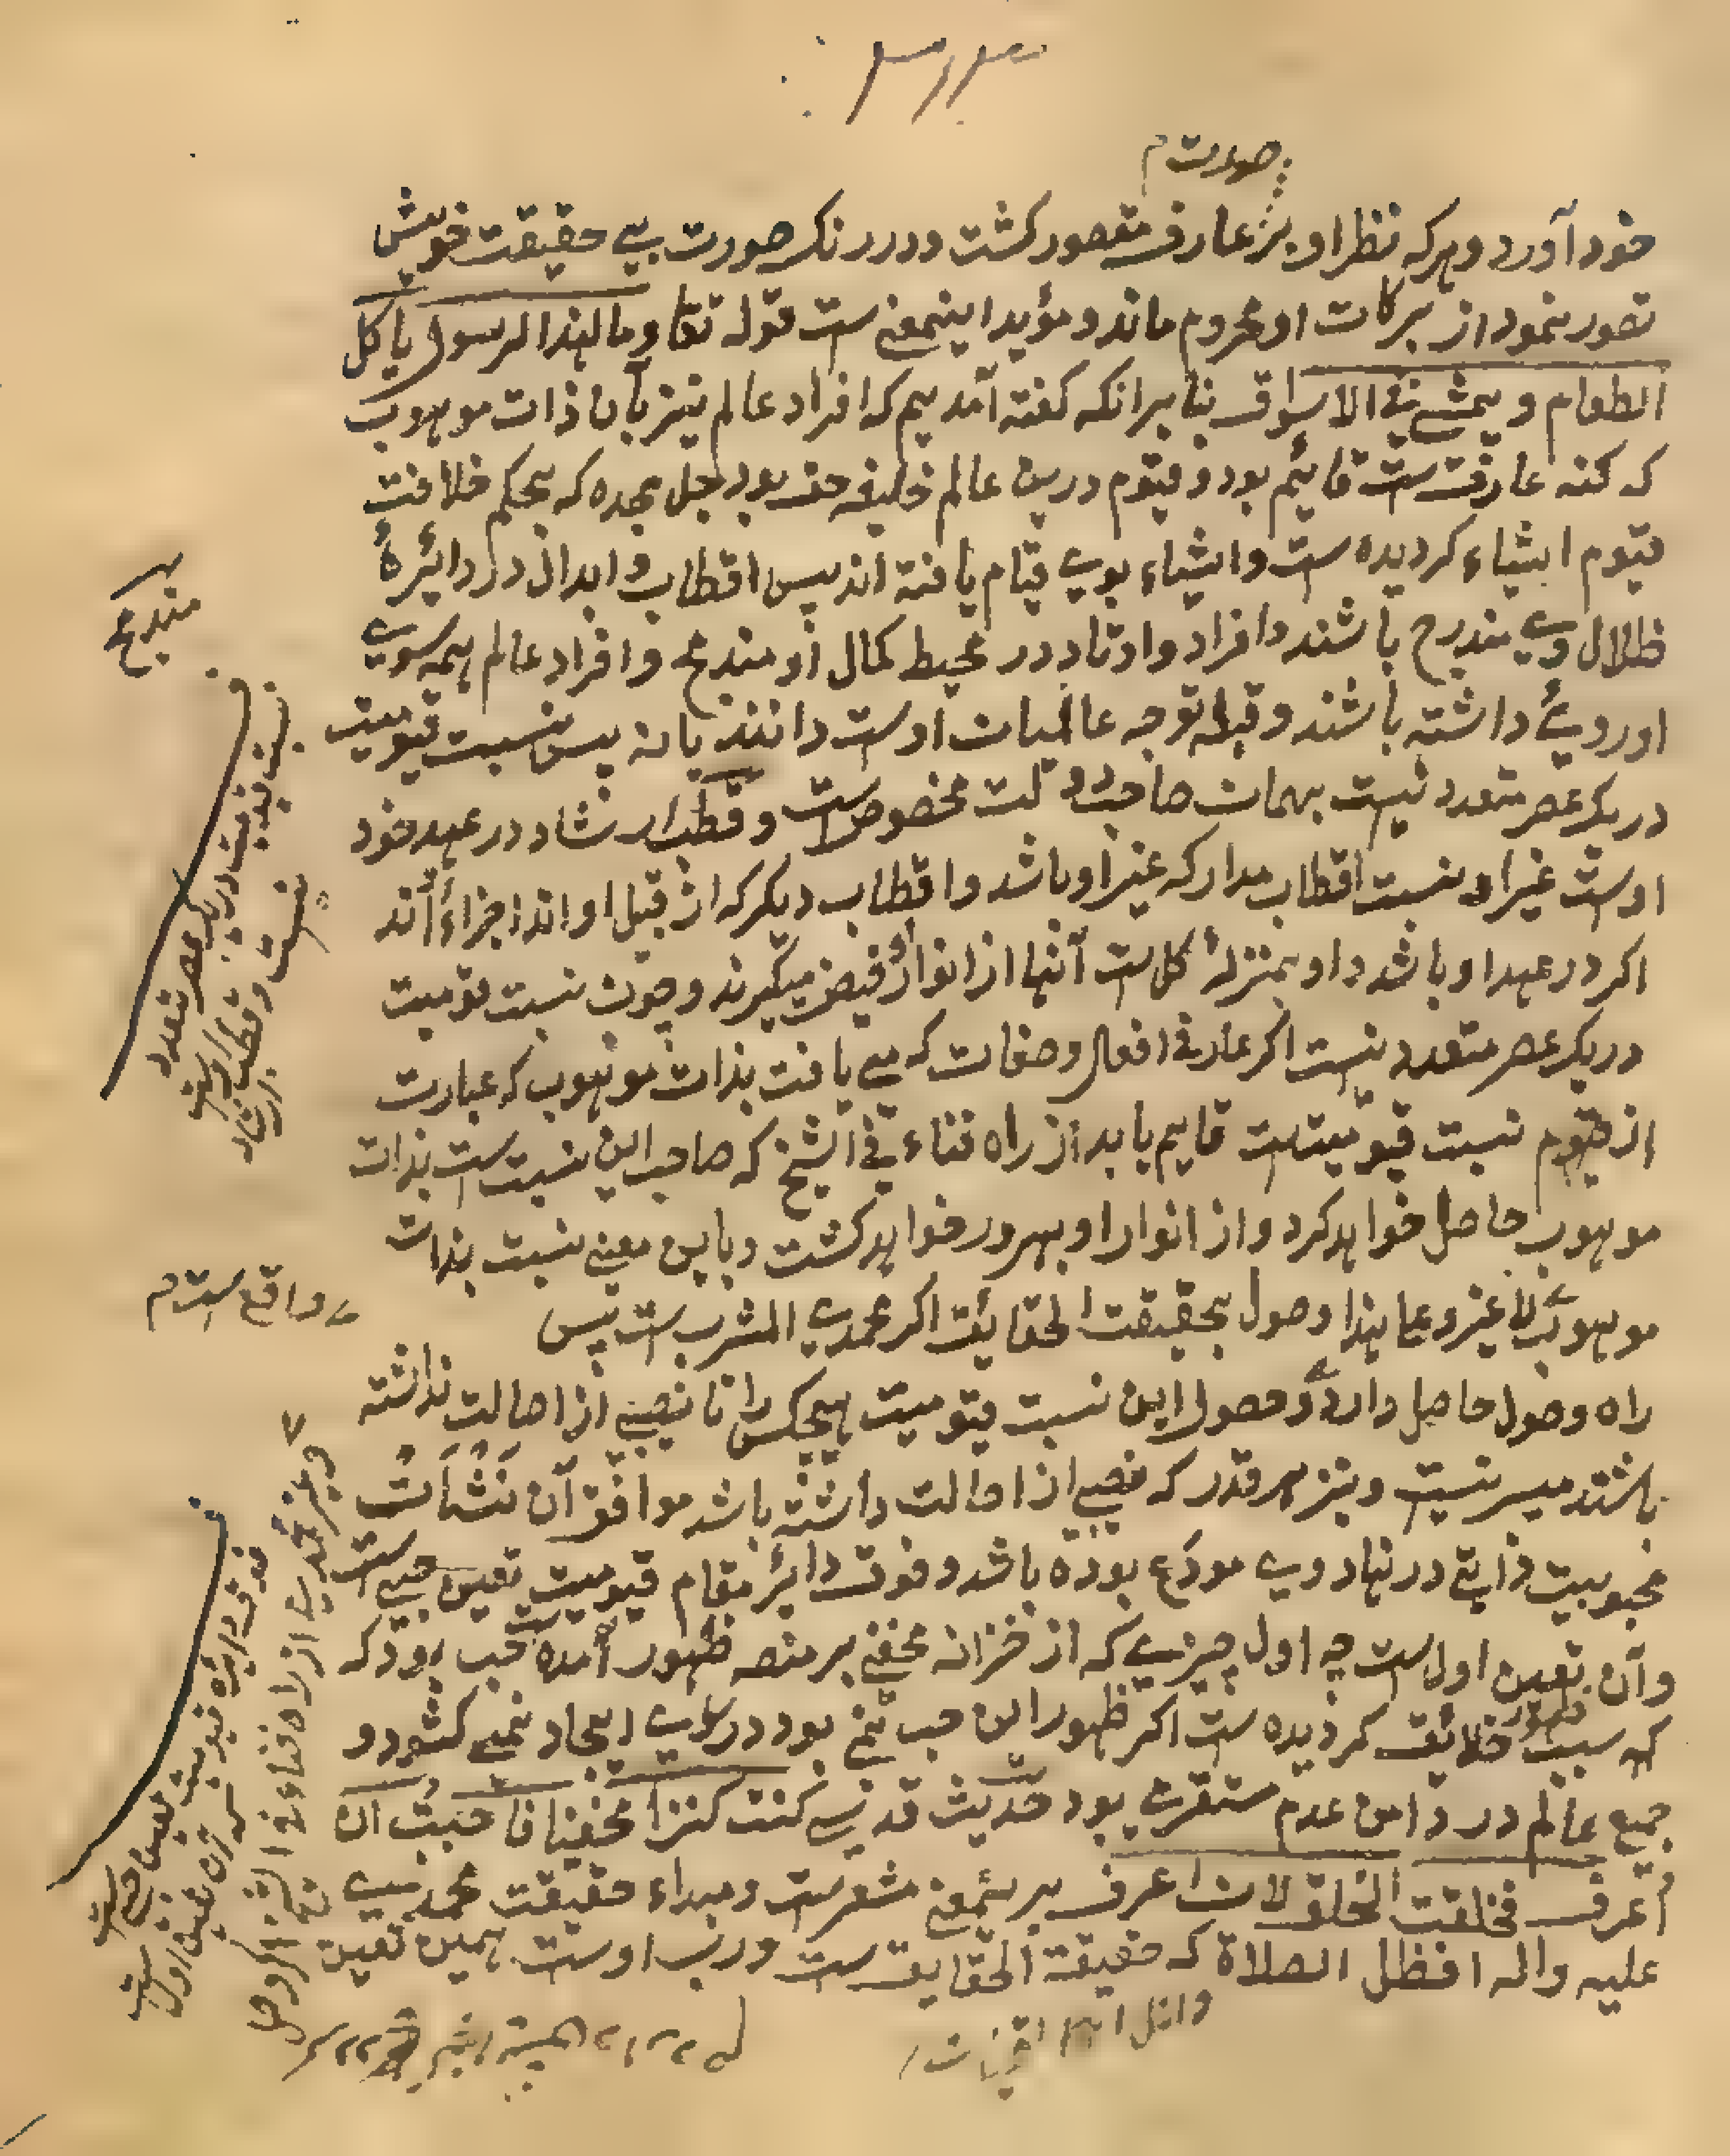 صورت م
خود آورد و هر که نظر او بر عارف مقصور کشت و در رنک صورت بی حقیقت خویش
تصور نمود از برکات او محروم ماند و مؤید اینمعنی ست قوله تعا و ما لهذا الرسول یاکل
الطعام و یمشی فی الاسواق بنا برانکه کفته آمدیم که افراد عالم نیز بآن ذات موهوب
که کنه عارفست قائیم بود و قیوم درین عالم خلیفه حق بود جل مجده که بحکم خلافت
قیوم اشیاء کردیده ست و اشیاء بوی قیام یافته اند پس اقطاب و ابدال در دائرهٔ
ظلال وی مندرج باشند و افراد و اوتاد در محیط کمال او مندمج و افراد عالم همه سوی
او روی داشته باشند و قبله توجه عالمیان اوست دانند یا نه پس نسبت قیومیت
در یک عصر متعدد نیست بهمان صاحب دولت مخصوص ست و قطب ارشاد در عهد خود
اوست غیر او نسبت اقطاب مدار که غیر او باشد و اقطاب دیکر که از قبیل او اند اجزاء آنند
اکر در عهد او باشد و او بمنزلهٔ کل ست آنها از انوار فیض میکیرند و چون نسبت قومیت
در یک عصر متعدد نیست اکر عارفی افعال و صفات که می یافت بذات موهوب که عبارت
از قیوم نسبت قیومیتست قایم یابد از راه فناء فی الشیخ که صاحب این نسبت ست بذات
موهوب حاصل خواهد کرد و از انوار او بهرور خواهد کشت و باین معنی نسبت بذات
موهوب لا غیر و علی هذا وصول بحقیقت الحقائق اکر محمدی المشرب ست پس
راه وصول حاصل دارد و حصول این نسبت قیومیت هیچکس را تا نصیبی از اصالت نداشته
باشند میسر نیست و نیز هر قدر که نصیبی از اصالت داشته باشد موافق آن نَشْأت
محبوبیت ذاتی در نهاد وی مودع بوده باشد و فوق دائره مقام قیومیت تعین حبی ست
و آن تعین اول ست چه اول چیزی که از خزانه مخفی بر منصه ظهور آمده ست حب بود که
که سبب ظهور خلائق کردیده ست اکر ظهور این حب نمی بود در ایجاد نمی کشود و
جمیع عالم در دامن عدم مستقری بود حدیث قدسی کنت کنزا مخفیا فاحببت ان
اعرف فخلقت الخلق لان اعرف بر ینمعنی مشعر ست و مبداء حقیقت محمدیست
علیه و اله افظل الصلاة که حقیقة الحقایق ست و رب اوست همین تعین
مندمج
نسبت قیومیت در یک عصر متعدد
نیست و قطب ارشاد اوست
واقع ست م
و غیر محمدی از راه فناء فی الشیخ اکر وصل
فوق دایره قیومیت تعین حبی ست
که آن تعین اول ست